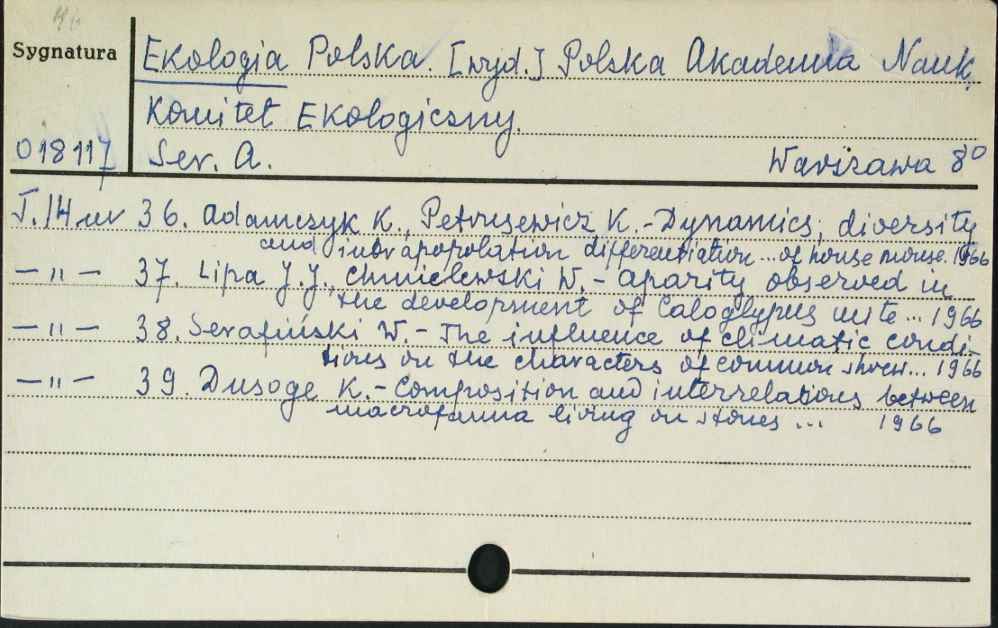 Sygnatura
Ekologia Polska. [wyd.] Polska Akademia Nauk,
Komitet Ekologiczny.
018117 Ser. A. Warszawa 8°
T. 14 nr 36. Adamczyk K., Petrusewicz K. - Dynamics, diversity
and intrapopolation differentiation ... of house mouse. 1966
— " — 37. Lipa J. J., Chmielewski W. - Aparity observed in
the development of Caloglyphus mite ... 1966
— " — 38. Serafiński W. - The influence of climatic condi-
tions on the characters of common shrew... 1966
— " — 39. Dusoge K. - Composition and interrelations between
macrofauna living on stones ... 1966